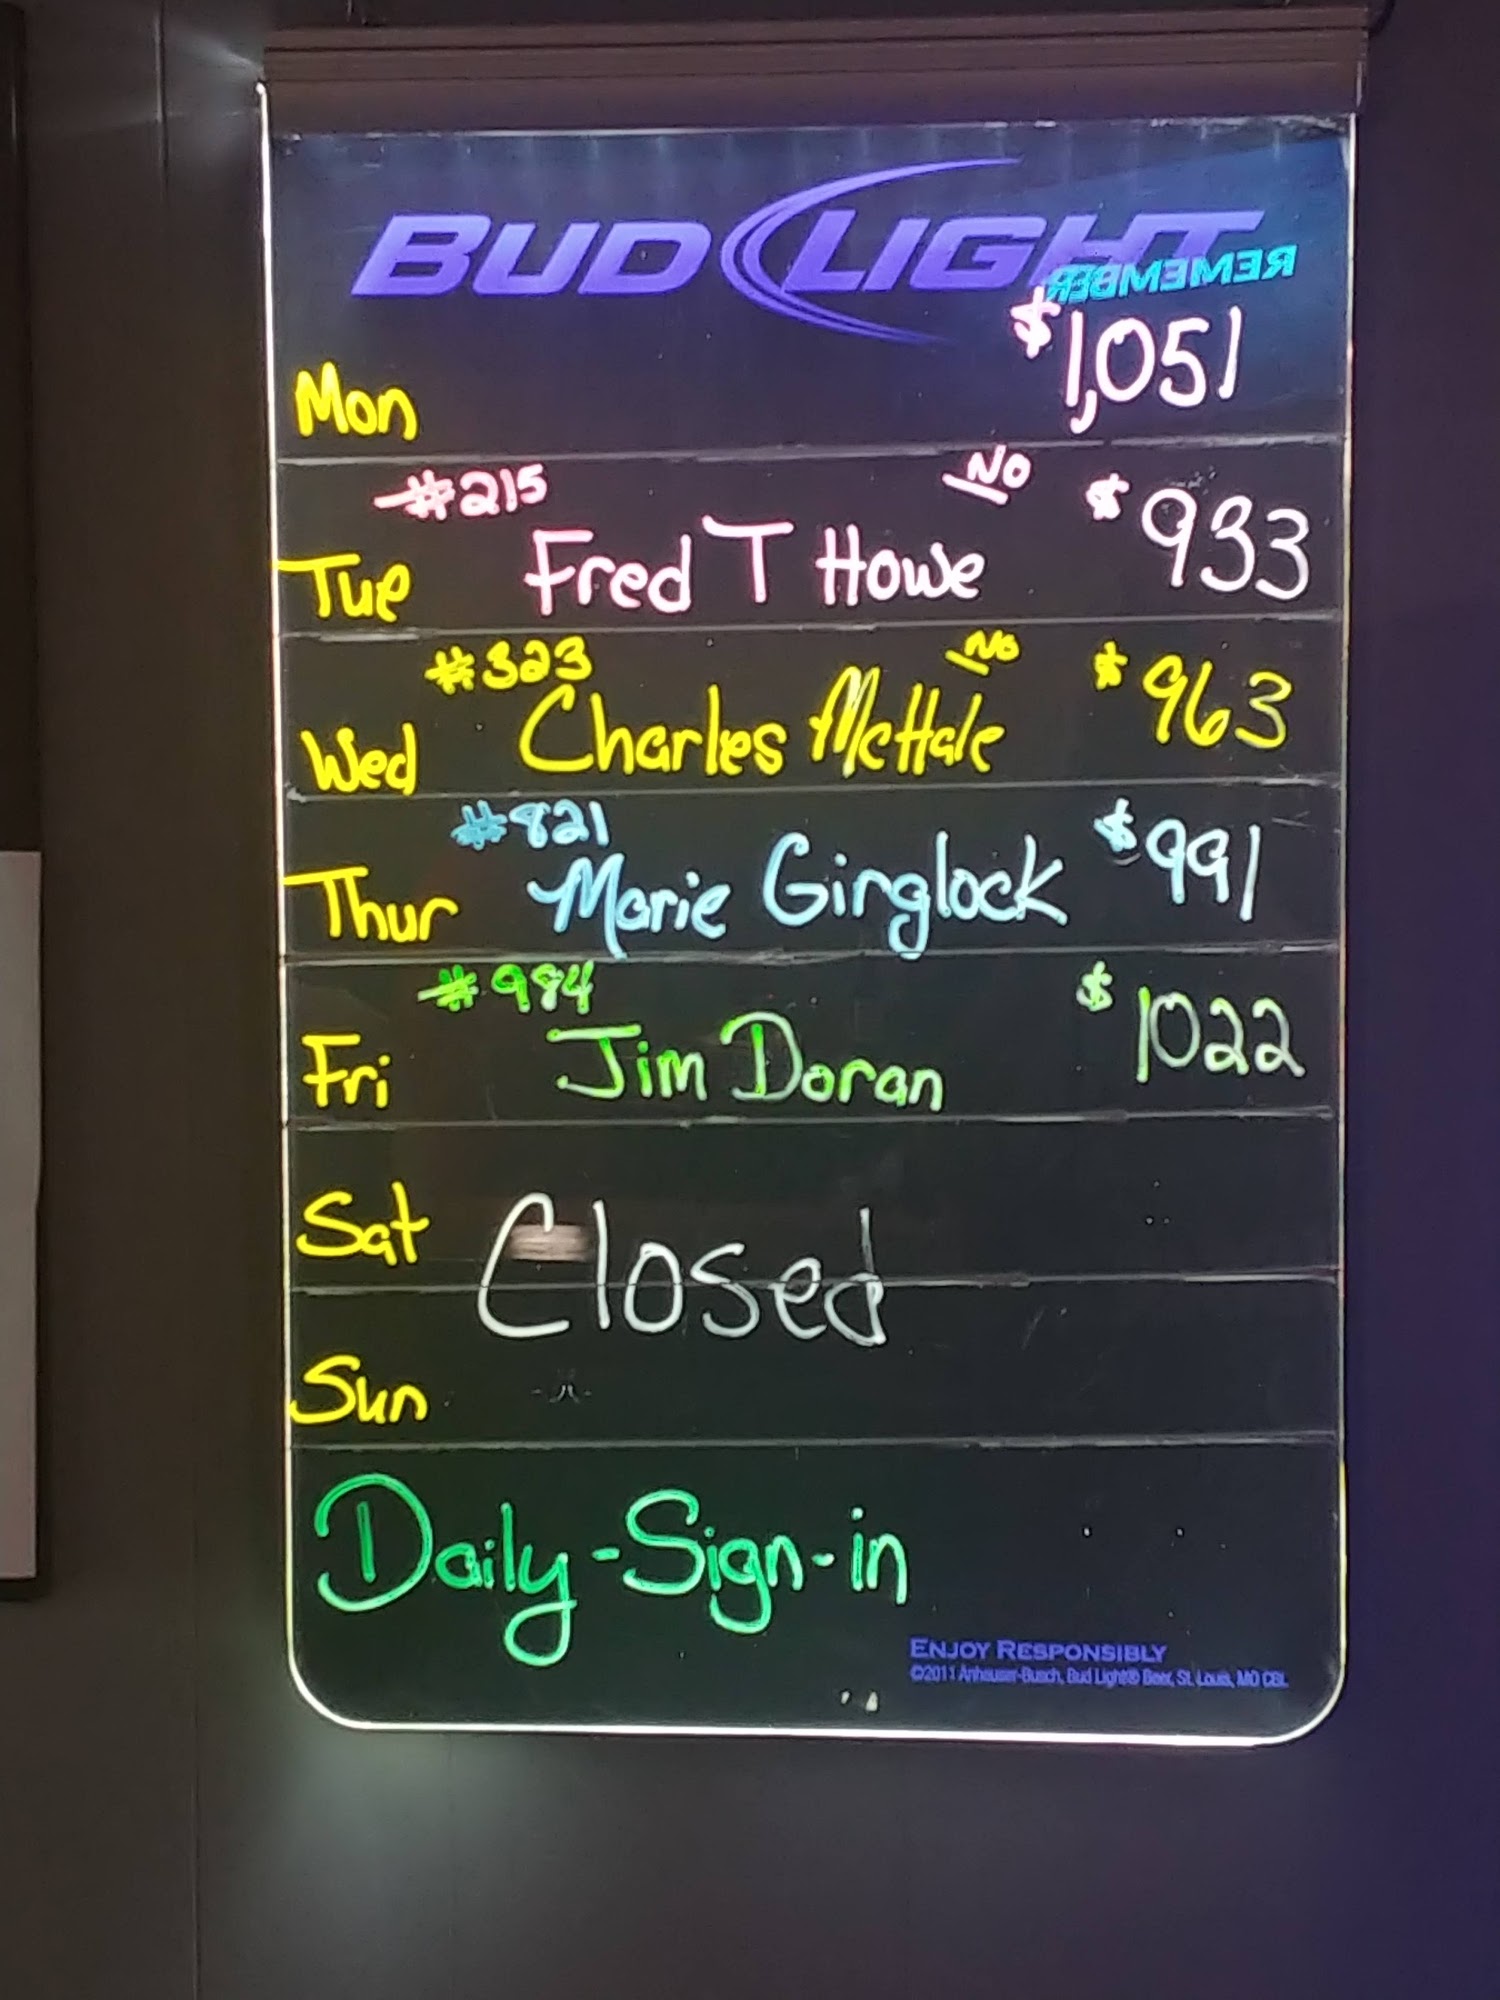 BUD LIGHT
REMEMBER
Mon $1,051
#215 NO
Tue Fred T Howe $933
#323 NO
Wed Charles McHale $963
#821
Thur Marie Girglock $991
#984
Fri Jim Doran $1022
Sat Closed
Sun
Daily-Sign-in
ENJOY RESPONSIBLY
©2011 Anheuser-Busch, Bud Light® Beer, St. Louis, MO CBL